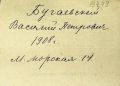 Бугаевский
Василий Петрович
1908г.
М. Морская 14